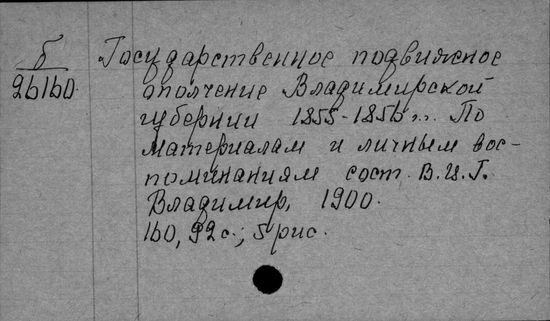 б
26160.
Государственное подвижное
ополчение Владимирской
губернии 1855-1856 гг. По
материалам и личным вос-
поминаниям сост. В.И.Г.
Владимир, 1900.
160, 92 с.; 5 рис.